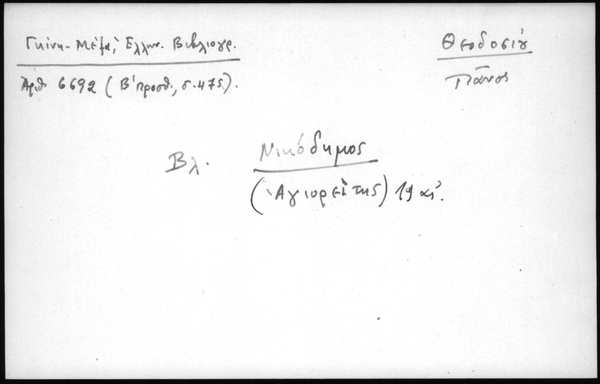 Γκίνη-Μέξα, Ἑλλην. Βιβλιογρ.
Ἀριθ. 6692 (Β' προσθ., σ. 475).
Θεοδοσίου
Πᾶνος
Βλ. Νικόδημος
(Ἁγιορείτης) 19 αἰ.